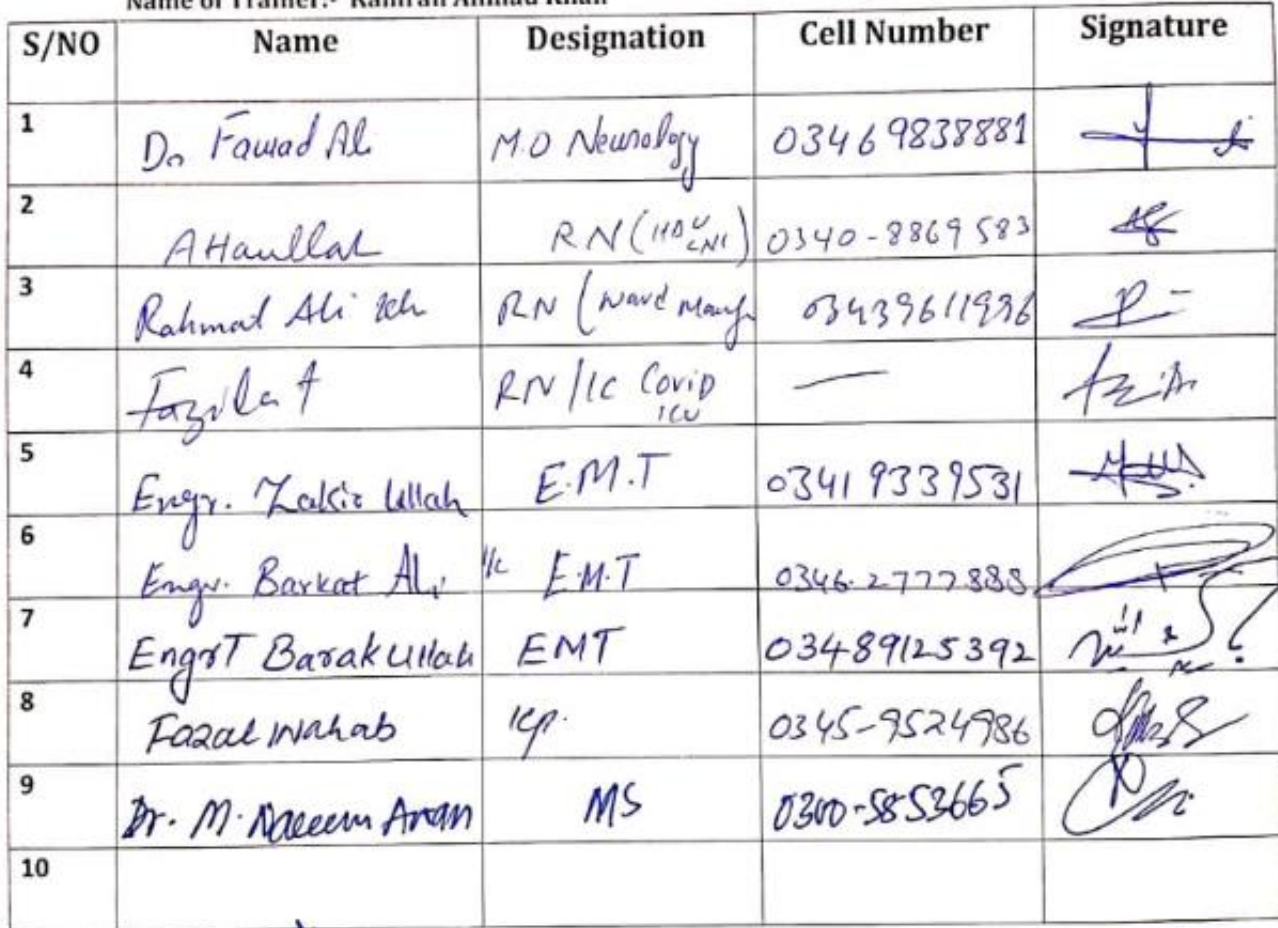 Name of Trainer:- Kamran Ahmad Khan
S/NO Name Designation Cell Number Signature
1 Dr Fawad Ali M.O Neurology 03469838881
2 Attaullah RN (HDU 0340-8869583
3 Rahmat Ali RN (Ward 03439611936
4 Fazila RN/IC Covid ICU —
5 Engr. Zakir Ullah E.M.T 03419339531
6 Engr. Barkat Ali I/c E.M.T 0346-2777888
7 Engr T Barakullah EMT 03489125392
8 Fazal Wahab 0345-9524986
9 Dr. M. Naeem MS 0300-5853665
10